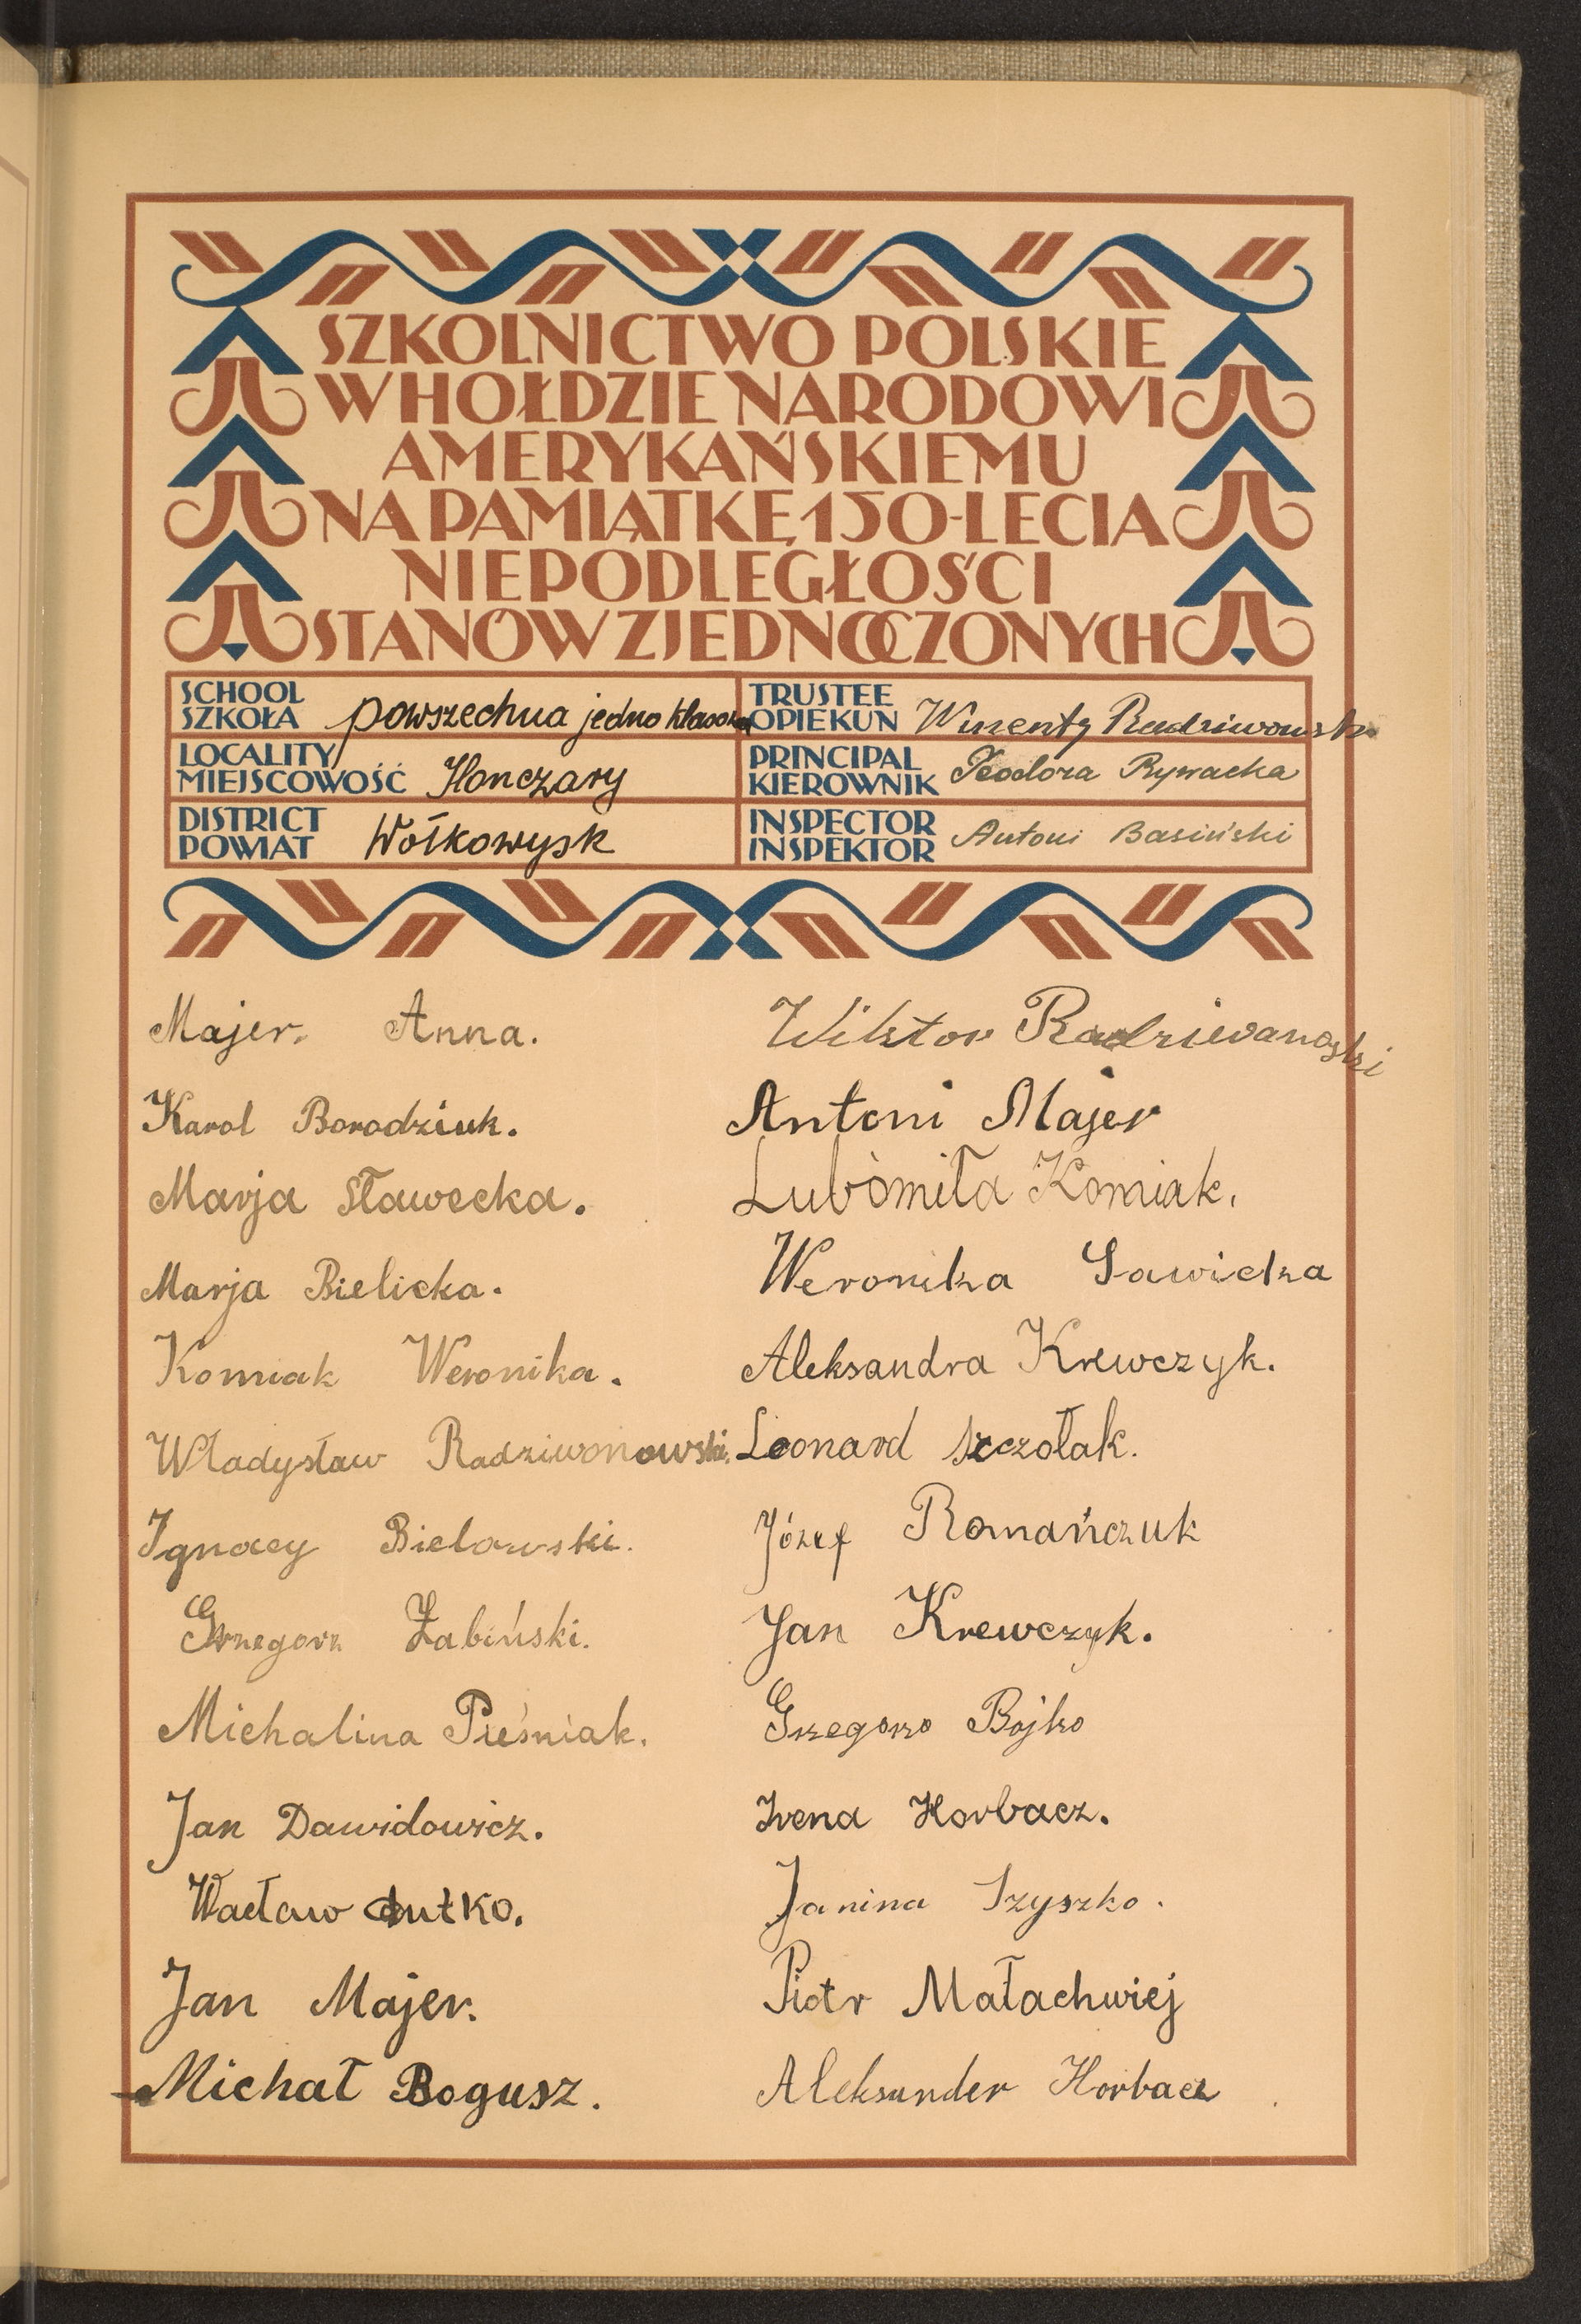 SZKOLNICTWO POLSKIE
W HOŁDZIE NARODOWI
AMERYKAŃSKIEMU
NA PAMIĄTKĘ 150-LECIA
NIEPODLEGŁOŚCI
STANÓW ZJEDNOCZONYCH
SCHOOL
SZKOŁA powszechna jedno klasowa
LOCALITY
MIEJSCOWOŚĆ Honczary
DISTRICT
POWIAT Wołkowysk
TRUSTEE
OPIEKUN Winenty Radziwonski
PRINCIPAL
KIEROWNIK Teodora Rywacka
INSPECTOR
INSPEKTOR Antoni Basiński
Majer. Anna.
Karol Borodziuk.
Marja Sławecka.
Marja Bielicka.
Komiak Weronika.
Władysław Radziwonowski.
Ignacy Bielawski.
Grzegorz Żabiński.
Michalina Pieśniak.
Jan Dawidowicz.
Wacław Dutko.
Jan Majer.
Michał Bogusz.
Wiktor Radziewanowski
Antoni Majer
Lubomiła Komiak.
Weronika Sawicka
Aleksandra Krewczyk.
Leonard Szczołak.
Józef Romańczuk
Jan Krewczyk.
Grzegorz Bojko
Irena Horbacz.
Janina Szyszko.
Piotr Małachwiej
Aleksander Horbacz